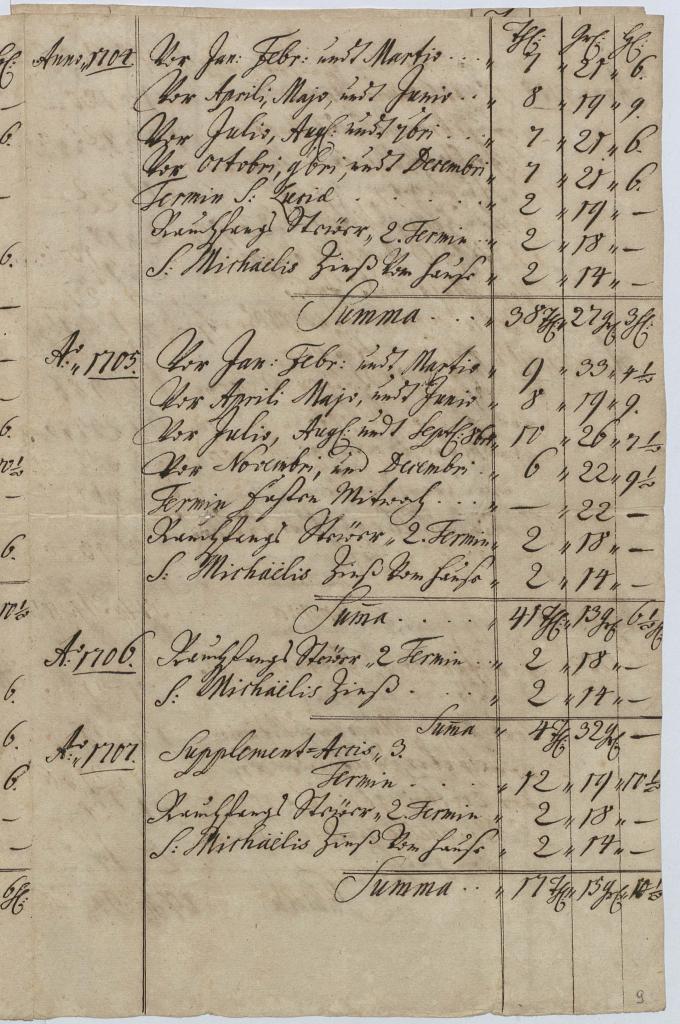 Thl: grl: hl:
Anno 1704 Vor Jan: Febr: undt Martio . . . " 7 " 21 " 6.
Vor Aprili, Majo, undt Junio . . " 8 " 19 " 9.
Vor Julio, Augl: undt 7bri . . . " 7 " 21 " 6.
Vor Octobri, 9bri, undt Decembri " 7 " 21 " 6.
Termin S: Luciæ . . . . . . " 2 " 19 " —
Rauchfangs Steüer " 2. Termin . . " 2 " 18 " —
S: Michaëlis Zinß Vom Hauße " 2 " 14 " —
Summa . . . " 38 Thl " 27 grl 3 hl:
Ao: 1705. Vor Jan: Febr: undt Martio " 9 " 33 " 4 ½
Vor Aprili Majo, undt Junio " 8 " 19 " 9.
Vor Julio, Augl: undt Septl: 8br " 10 " 26 " 7 ½
Vor Novembri, und Decembri . " 6 " 22 " 9 ½
Termin Fasten Mitwoch . . . " — " 22 —
Rauchfangs Steüer " 2. Termin " 2 " 18 " —
S: Michaëlis Zinß Vom Hauße " 2 " 14 " —
Summa . . . . " 41 Thl " 13 grl 6 ½ hl
Ao: 1706. Rauchfangs Steüer " 2 Termin . . " 2 " 18 " —
S: Michaëlis Zinß . . . . . " 2 " 14 " —
Summa " 4 Thl 32 grl —
Ao: 1707. Supplement=Accis " 3.
Termin . . . . " 12 " 19 " 10 ½
Rauchfangs Steüer " 2. Termin " 2 " 18 " —
S: Michaëlis Zinß Vom Hauße " 2 " 14 " —
Summa . . " 17 Thl " 15 grl " 10 ½
9